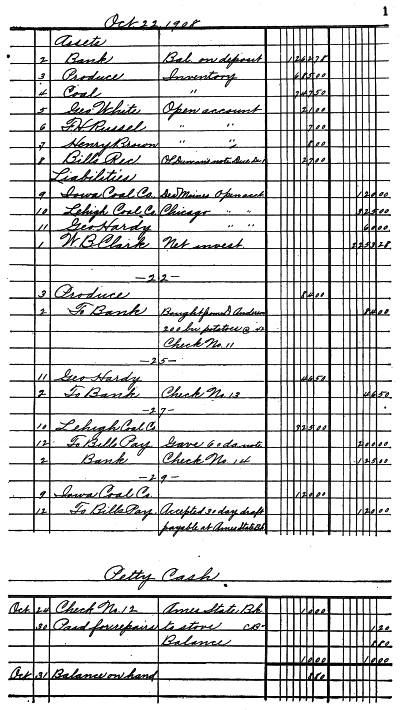 1
Oct 22, 1908
Assets
2 Bank Bal. on deposit 1262 78
3 Produce Inventory 685 00
4 Coal " 747 50
5 Geo White Open account 21 00
6 F.H. Russel " " 7 00
7 Henry Brown " " 8 00
8 Bills Rec 27 00
Liabilities
9 Iowa Coal Co. Des Moines Open acct 120 00
10 Lehigh Coal Co. Chicago " " 325 00
11 Geo Hardy " " 60 00
1 W.B. Clark Net invest. 2253 28
—22—
3 Produce 84 00
2 To Bank Bought from J. Anderson 84 00
200 bu. potatoes @ 42
Check No. 11
—25—
11 Geo Hardy 46 50
2 To Bank Check No. 13 46 50
—27—
10 Lehigh Coal Co. 325 00
12 To Bills Pay Gave 60 da note 200 00
2 Bank Check No. 14 125 00
—29—
9 Iowa Coal Co. 120 00
12 To Bills Pay. Accepted 30 day draft 120 00
payable at Ames State Bk
Petty Cash
Oct 24 Check No. 12 Ames State. Bk 10 00
30 Paid for repairs to stove CB 1 20
Balance 8 80
10 00 10 00
Oct 31 Balance on hand 8 80